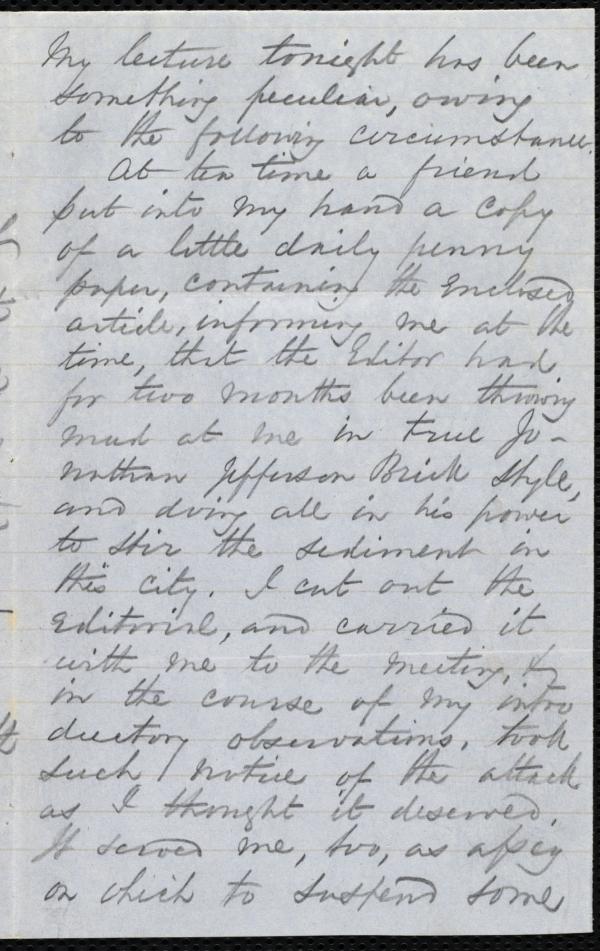 My lecture tonight has been
something peculiar, owing
to the following circumstance.
At tea time a friend
put into my hand a copy
of a little daily penny
paper, containing the enclosed
article, informing me at the
time, that the Editor had
for two months been throwing
mud at me in true Jo-
nathan Jefferson Brick style,
and doing all in his power
to stir the sediment in
this city. I cut out the
Editorial, and carried it
with me to the meeting, &
in the course of my intro
ductory observations, took
such notice of the attack
as I thought it deserved.
It served me, too, as a peg
on which to suspend some